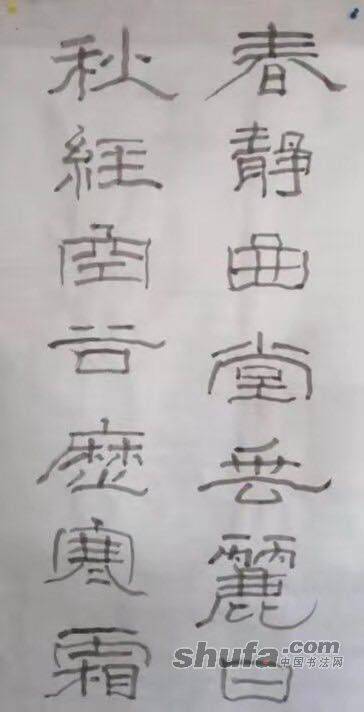 春靜曲堂垂麗日
秋經空谷歷寒霜
shufa.com
中国书法网